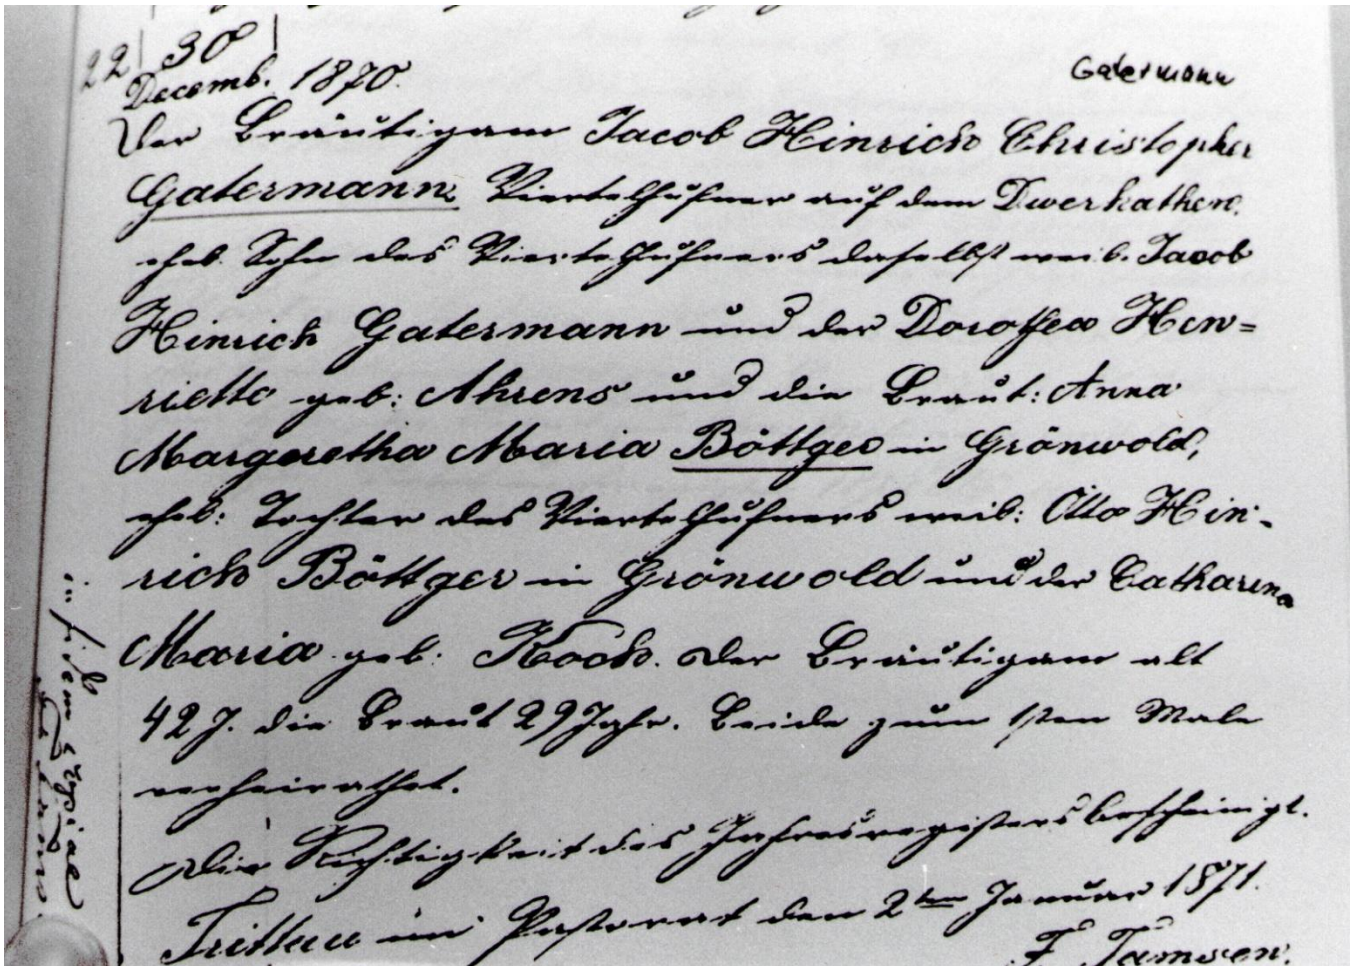 22 | 30 |
Decemb. 1870.
Gatermann
Der Bräutigam Jacob Hinrich Christopher
Gatermann Viertelhufner auf dem Dwerkathen.
ehel. Sohn des Viertelhufners daselbst weil. Jacob
Hinrich Gatermann und der Dorothea Hen=
riette geb: Ahrens und die Braut: Anna
Margaretha Maria Böttger in Grönwold,
ehel: Tochter des Viertelhufners weil: Otto Hin-
rich Böttger in Grönwold und der Catharina
Maria geb: Koch. Der Bräutigam alt
42 J. die Braut 29 Jahr. Beide zum 1sten Male
verheirathet.
Die Richtigkeit des Jahresregisters bescheinigt.
Trittau im Pastorat den 2ten Januar 1871.
F. Tamsen.
in fidem copiae